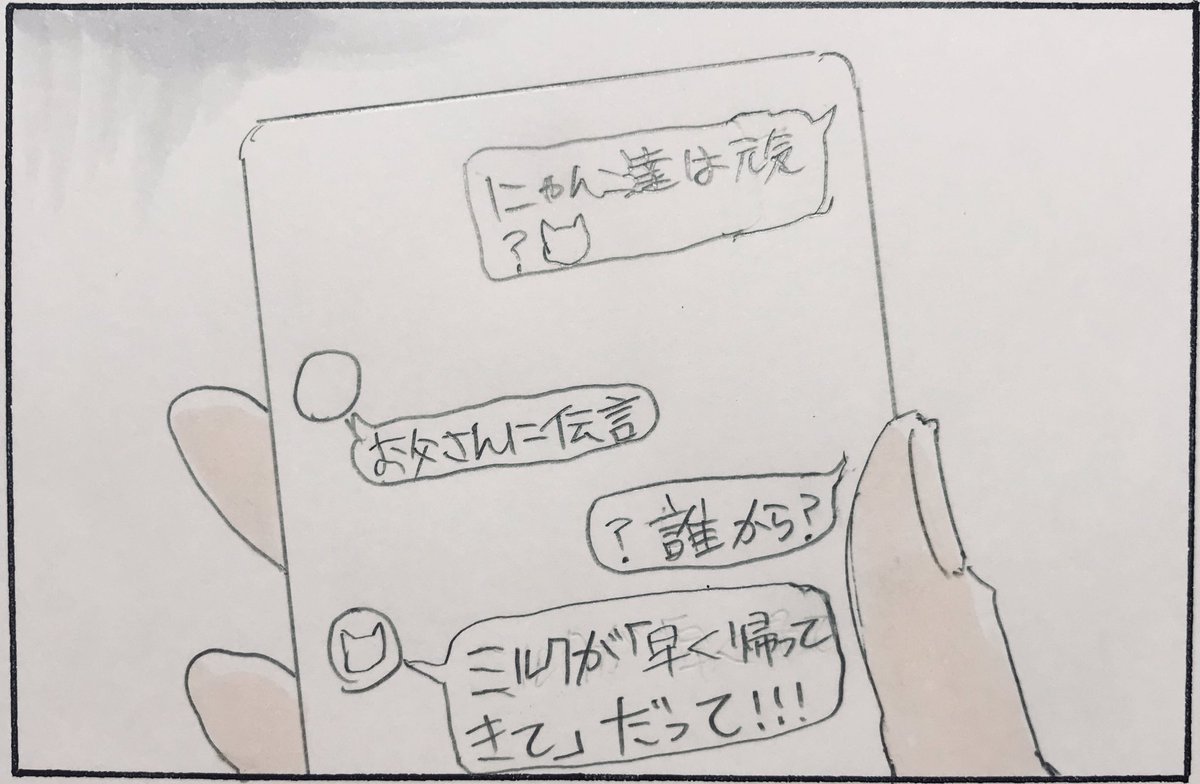 にゃんこ達は元気
?
お父さんに伝言
?誰から?
ミルクが「早く帰って
きて」だって!!!